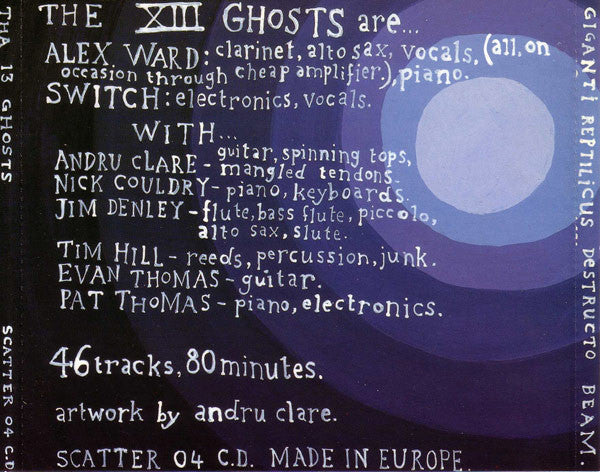 THE XIII GHOSTS are...
ALEX. WARD: clarinet, alto sax, vocals, (all, on
occasion through cheap amplifier,), piano.
SWITCH: electronics, vocals.
WITH...
ANDRU CLARE - guitar, spinning tops,
mangled tendons.
NICK COULDRY - piano, keyboards.
JIM DENLEY - flute, bass flute, piccolo,
alto sax, slute.
TIM HILL - reeds, percussion, junk.
EVAN THOMAS - guitar.
PAT THOMAS - piano, electronics.
46 tracks, 80 minutes.
artwork by andru clare.
SCATTER 04 C.D. MADE IN EUROPE.
THA 13 GHOSTS
SCATTER 04 C.D
GIGANTI REPTILICUS DESTRUCTO BEAM.